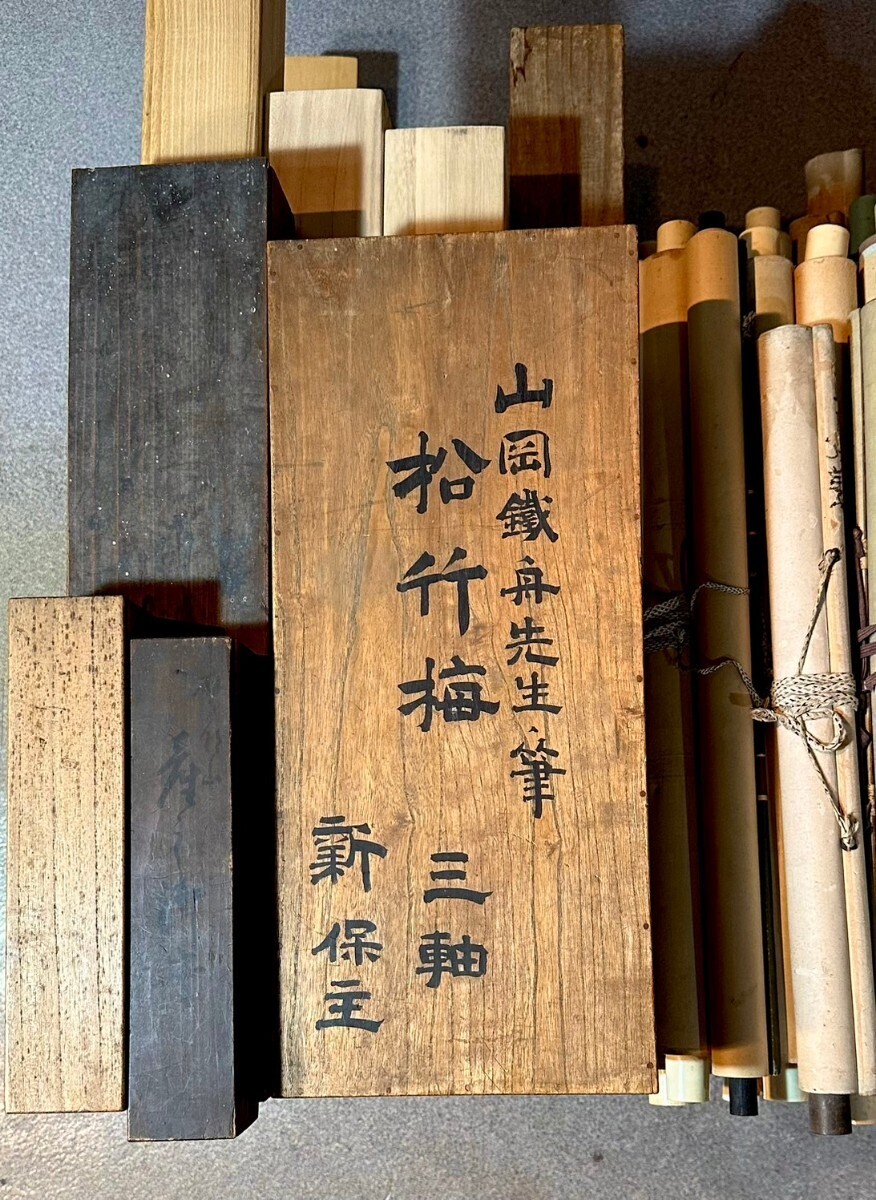 山岡鐵舟先生筆
松竹梅 三軸
新保主